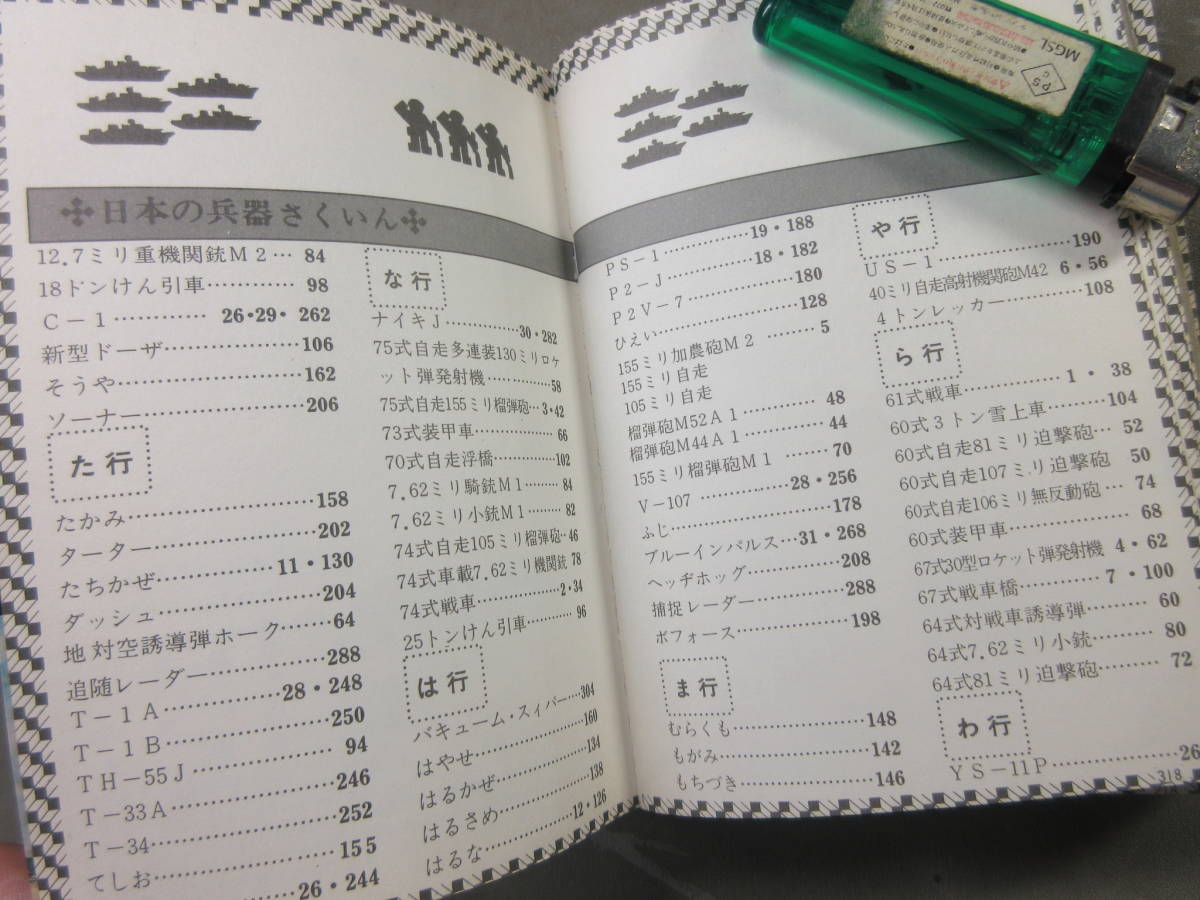 日本の兵器さくいん
12.7ミリ重機関銃M2… 84
18トンけん引車………… 98
C－1………… 26・29・262
新型ドーザ……………… 106
そうや…………………… 162
ソーナー………………… 206
た行
たかみ…………………… 158
ターター………………… 202
たちかぜ………… 11・130
ダッシュ………………… 204
地対空誘導弾ホーク…… 64
追随レーダー…………… 288
T－1A………… 28・248
T－1B………………… 250
TH－55J……………… 94
T－33A………………… 246
T－34…………………… 252
てしお…………………… 155
…………………… 26・244
な行
ナイキJ………… 30・282
75式自走多連装130ミリロケ
ット弾発射機………… 58
75式自走155ミリ榴弾砲… 3・42
73式装甲車……………… 66
70式自走浮橋………… 102
7.62ミリ騎銃M1……… 84
7.62ミリ小銃M1……… 82
74式自走105ミリ榴弾砲… 46
74式車載7.62ミリ機関銃 78
74式戦車………… 2・34
25トンけん引車……… 96
は行
バキューム・スィパー… 304
はやせ…………………… 160
はるかぜ………………… 134
はるさめ………………… 138
はるな………… 12・126
PS－1………… 19・188
P2－J………… 18・182
P2V－7………………… 180
ひえい…………………… 128
155ミリ加農砲M2 …… 5
155ミリ自走
105ミリ自走
榴弾砲M52A1 ……… 48
榴弾砲M44A1 ……… 44
155ミリ榴弾砲M1 …… 70
V－107 ………… 28・256
ふじ……………………… 178
ブルーインパルス… 31・268
ヘッヂホッグ…………… 208
捕捉レーダー…………… 288
ボフォース……………… 198
ま行
むらくも………………… 148
もがみ…………………… 142
もちづき………………… 146
や行
US－1…………………… 190
40ミリ自走高射機関砲M42 6・56
4トンレッカー………… 108
ら行
61式戦車………… 1・38
60式3トン雪上車……… 104
60式自走81ミリ迫撃砲… 52
60式自走107ミリ迫撃砲 50
60式自走106ミリ無反動砲… 74
60式装甲車……………… 68
67式30型ロケット弾発射機 4・62
67式戦車橋………… 7・100
64式対戦車誘導弾……… 60
64式7.62ミリ小銃……… 80
64式81ミリ迫撃砲……… 72
わ行
YS－11P………………… 26
318
MGSL
PS
C